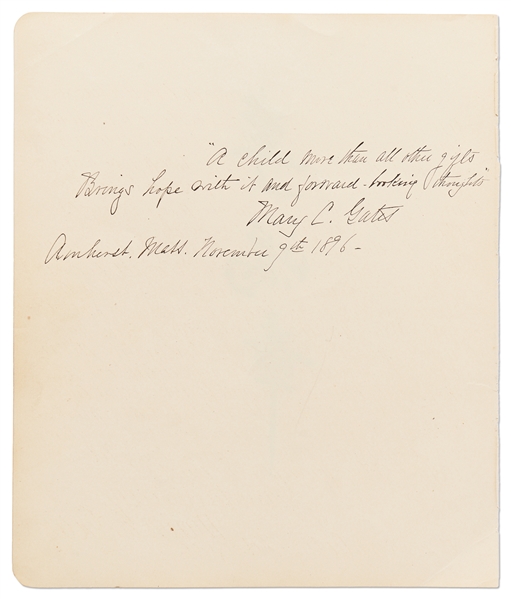 "A child more than all other gifts
Brings hope with it and forward-looking thoughts"
Mary C. Gates
Amherst. Mass. November 9th 1896-